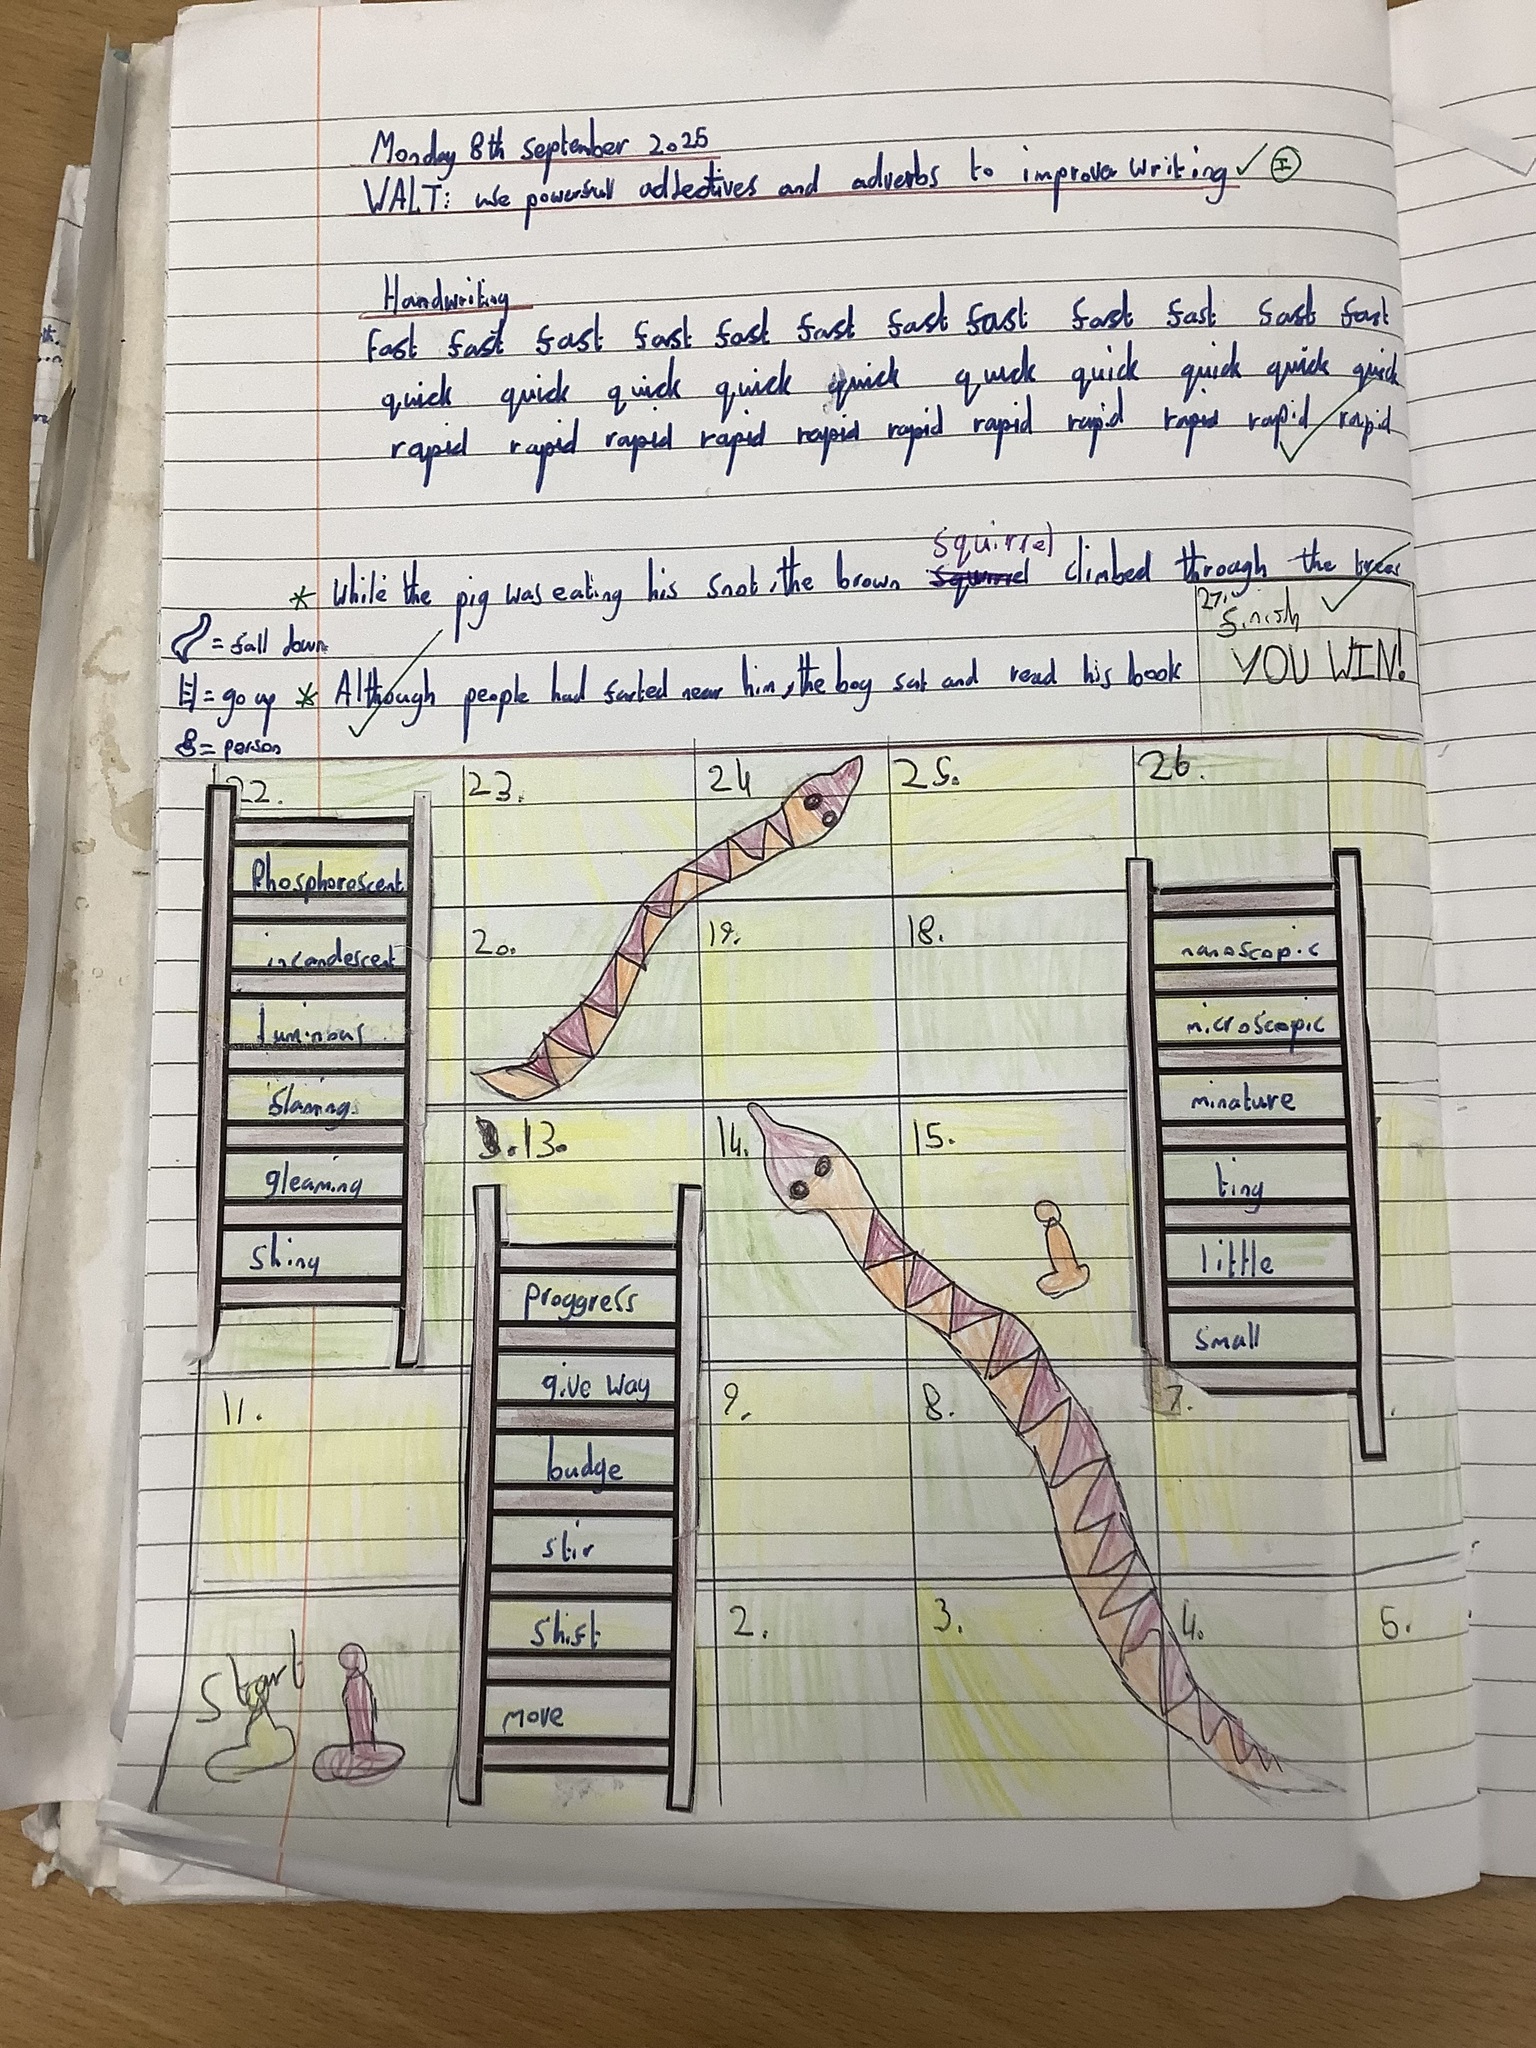 Monday 8th september 2025
WALT: use powerfull adjectives and adverbs to improve writing
Handwriting
fast fast fast fast fast fast fast fast fast fast fast fast
quick quick quick quick quick quick quick quick quick quick
rapid rapid rapid rapid rapid rapid rapid rapid rapid rapid rapid
squirrel
* While the pig was eating his snot, the brown climbed through the trees
= fall down
27. finish
YOU WIN!
= go up * Although people had farted near him, the boy sat and read his book
= person
22. 23. 24 25. 26.
Phosphorescent
incandescent
luminous
flaming
gleaming
shiny
20. 19. 18.
nanoscopic
microscopic
minature
tiny
little
small
13. 14. 15.
proggress
give way
budge
stir
shift
move
11. 9. 8. 7.
Start 2. 3. 4. 5.